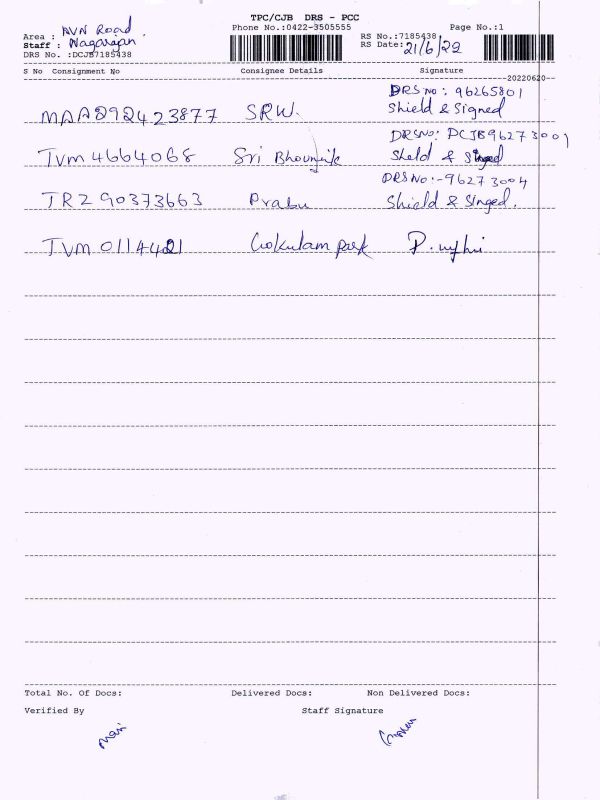 TPC/CJB DRS - PCC
Phone No.:0422-3505555
Page No.:1
Area : AVN Road
Staff : Nagarajan
DRS No. :DCJB7185438
RS No.:7185438
RS Date: 21/6/22
S No Consignment No Consignee Details Signature
20220620
DRS No: 96265801
MAA292423877 SRW. Shield & Signed
DRSNo: DCJB96273001
TVM4664068 Sri Sheld & Singed
DRSNo:-96273004
TRZ90373663 Prabu Shield & Singed.
TVM0114421 Gokulam park
Total No. Of Docs: Delivered Docs: Non Delivered Docs:
Verified By Staff Signature
mani